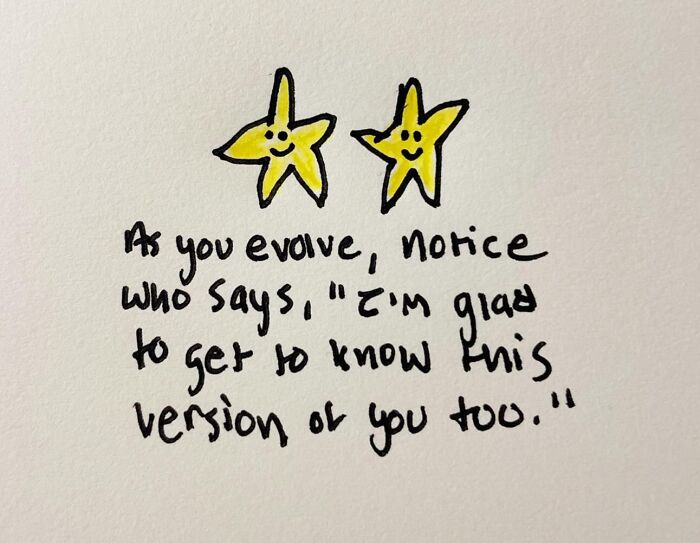 As you evolve, notice
who says, "I'm glad
to get to know this
version of you too."